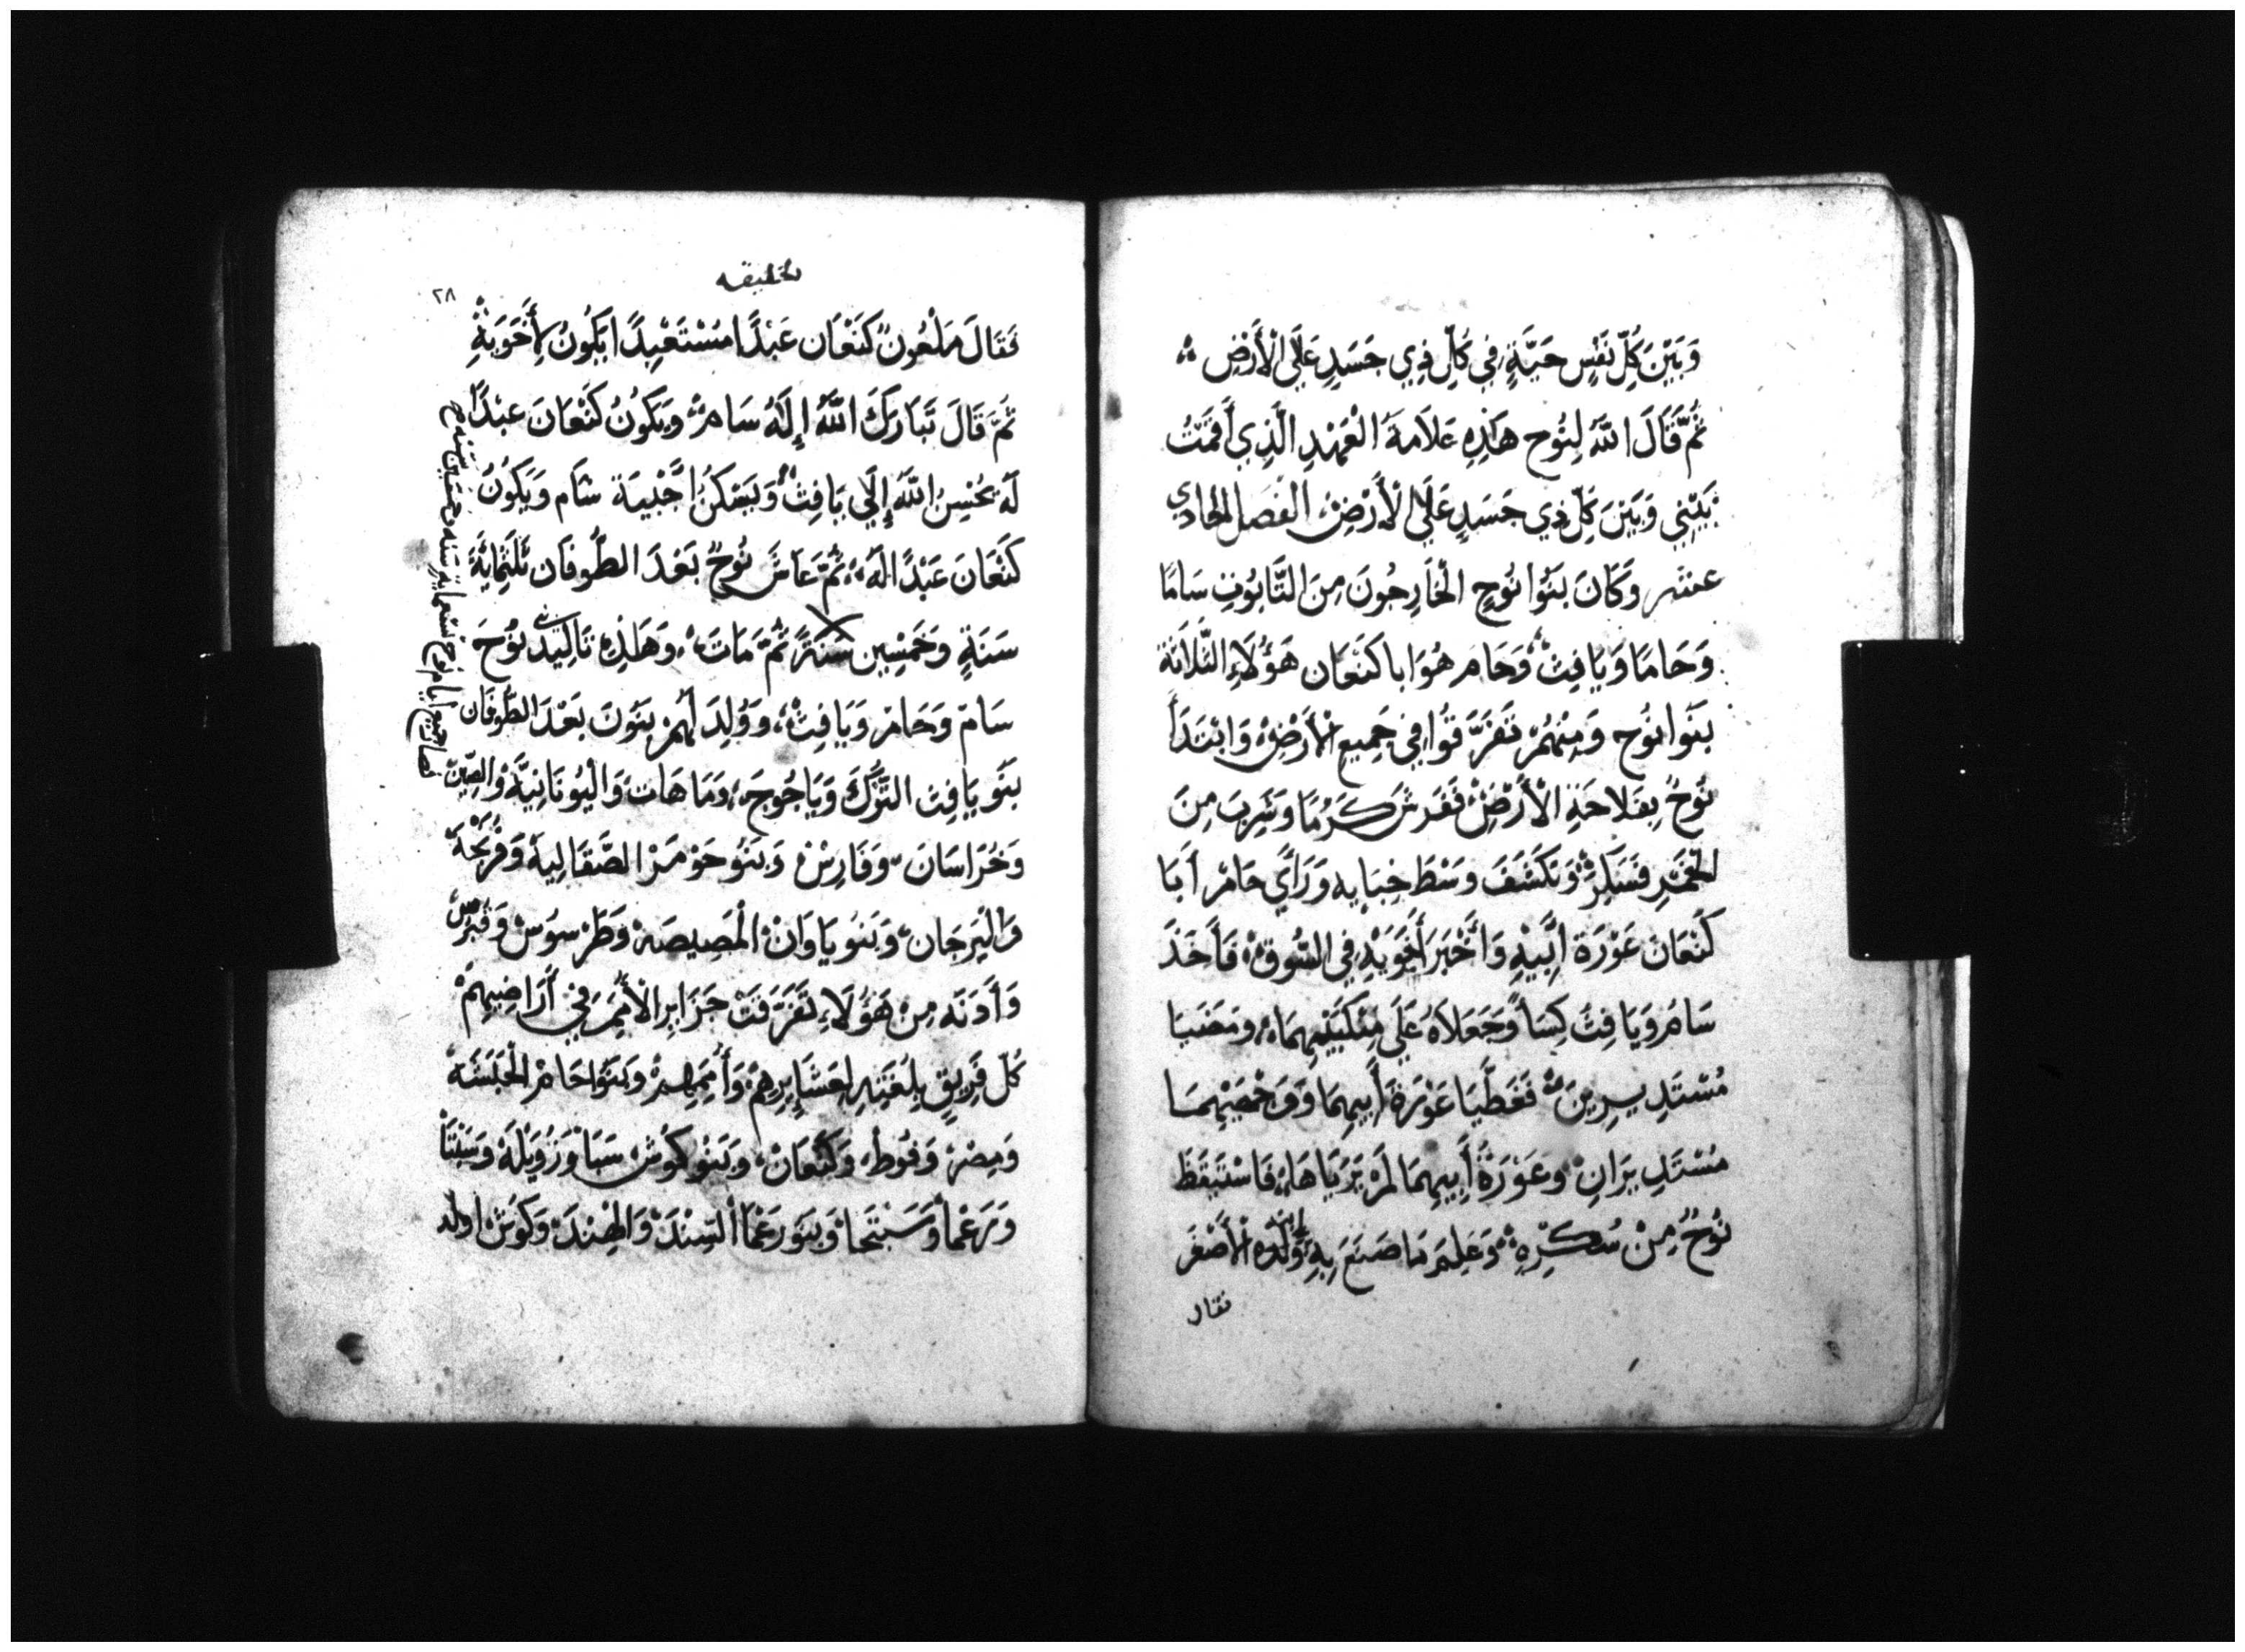 وَبَيْنَ كُلِّ نَفْسٍ حَيَّةٍ فِي كُلِّ ذِي جَسَدٍ عَلَى الْأَرْضِ
ثُمَّ قَالَ اللَّهُ لِنُوحٍ هَذِهِ عَلَامَةُ الْعَهْدِ الَّذِي أَقَمْتُ
بَيْنِي وَبَيْنَ كُلِّ ذِي جَسَدٍ عَلَى الْأَرْضِ الفَصل الحادي
عشر وَكَانَ بَنُوا نُوحٍ الْخَارِجُونَ مِنَ التَّابُوتِ سَامًا
وَحَامَا وَيَافِثْ وَحَام هُوَ ابا كَنَعَان هَؤُلَاءِ الثَّلَاثَة
بَنَوا نُوح وَمِنْهُمْ تَفَرَّقُوا فِي جَمِيعِ الْأَرْضِ وَابْتَدَأَ
نُوحٌ بِفَلَاحَةِ الْأَرْضِ فَغَرَسَ كَرْمًا وَشَرِبَ مِنَ
الخَمْرِ فَسَكِرَ وَتَكَشَّفَ وَسْطَ خِبَايِهِ وَرَأَي حَامْ أَبَا
كَنْعَانَ عَوْرَةَ أَبِيهِ وَأَخْبَرَ أَخَوَيْهِ فِي السُّوقِ فَأَخَذَ
سَامُ وَيَافِثُ كِسَأً وَجَعَلَاهُ عَلَي مِنْكَبَيْهِمَا وَمَضَيَا
مُسْتَدِيرِينَ فَغَطَّيَا عَوْرَةَ أَبِيهِمَا وَوَجْهَيْهِمَا
مُسْتَدِيرَانِ وَعَوْرَةُ أَبِيهِمَا لَمْ يَرَيَاهَا فَاسْتَيْقَظَ
نُوحٌ مِنْ سُكْرِهِ وَعَلِمَ مَا صَنَعَ بِهِ ابنه وَلَدُه الْأَصْغَر
فقال
الخليقه
٢٨
فَقَالَ مَلْعُونٌ كَنْعَان عَبْدًا مُسْتَعْبِدًا يَكُونُ لِأَخَوَيْهِ
ثُمَّ قَالَ تَبَارَكَ اللَّهُ إِلَهُ سَامْ وَيَكُونُ كَنْعَانَ عبْدًا
لَهُ يُحْسِنُ اللَّهُ إِلَي يَافِثْ وَيَسْكُنُ أَخْبِيَةَ سَام وَيَكُونُ
كَنْعَانَ عَبْدًا لَهُ ثُمَّ عَاشَ نُوحٌ بَعْدَ الطُّوفَان ثَلَثْمِائَةَ
سَنَةٍ وَخَمْسِين سَنَةً ثُمَّ مَاتَ وَهَذِهِ تَالِيد بني نُوحَ
سَامْ وَحَامْ وَيَافِثْ وَوُلِدَ لَهُمْ بَنُونَ بَعْدَ الطُّوفَان
بَنَو يَافِثَ التُّرْكَ وَيَاجُوجَ وَمَاهَاتَ وَالْيُونَانِيَّةَ وَالصِّينْ
وَخُرَاسَانَ وَفَارِسْ وَبَنُو جَوْمَرْ الصَّقَالِبةَ وَفْرَنْجَةَ
وَالْبَرجَان وَبَنُو يَاوَانْ الْمَصِيصَهْ وَطَرْسوُسْ وَقُبْرُس
وَأَدَنَه مِنْ هَؤُلَاءِ تَفَرَّقَتْ جَزَايِرِ الْأُمَمِ فِي أَرَاضِيهِمْ
كُل فَرِيقٍ بِلُغَتِهِ لِعَشَايِرِهِمْ وَأُمَمِهِمْ وَبَنَوْا حَامْ الْحَبَشَهْ
وَمِصْرْ وَفُوط وَكَنْعَانْ وَبَنُو كوُشْ سَبَأْ وَزُوَيْلَهْ وَسَبْتَا
وَرَعْمَا وَسَبْتَخَا وَبَنَو رَعْمَا السِّنْدَ وَالْهِنْدَ وَكَوُشْ اولد
فصار جميع ايام نوح تسعمايه سنه وخمسين سنه